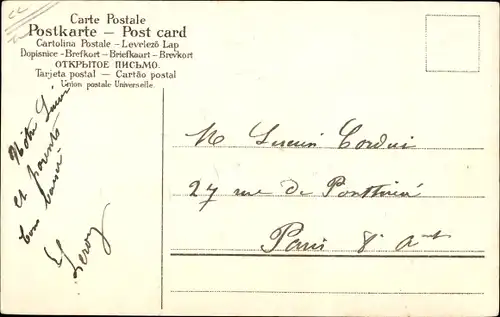 Carte Postale
Postkarte – Post card
Cartolina Postale – Levelező Lap
Dopisnice – Brefkort – Briefkaart – Brevkort
ОТКРЫТОЕ ПИСЬМО.
Tarjeta postal – Cartão postal
Union postale Universelle.
et parents
bons baisers
Leroy
M Lucien Cordier
27 rue de Ponthieu
Paris 8e Art